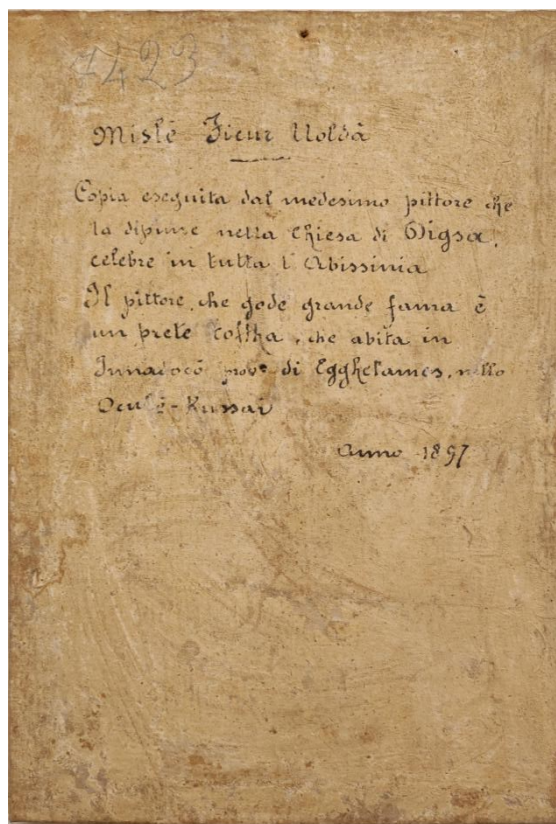 1423
Mislé Ficur Uoldà
Copia eseguita dal medesimo pittore che
la dipinse nella Chiesa di Digsa,
celebre in tutta l'Abissinia
Il pittore, che gode grande fama è
un prete coftha, che abita in
Innadocò prov° di Egghelames, nello
Oculè-Kussai
Anno 1897